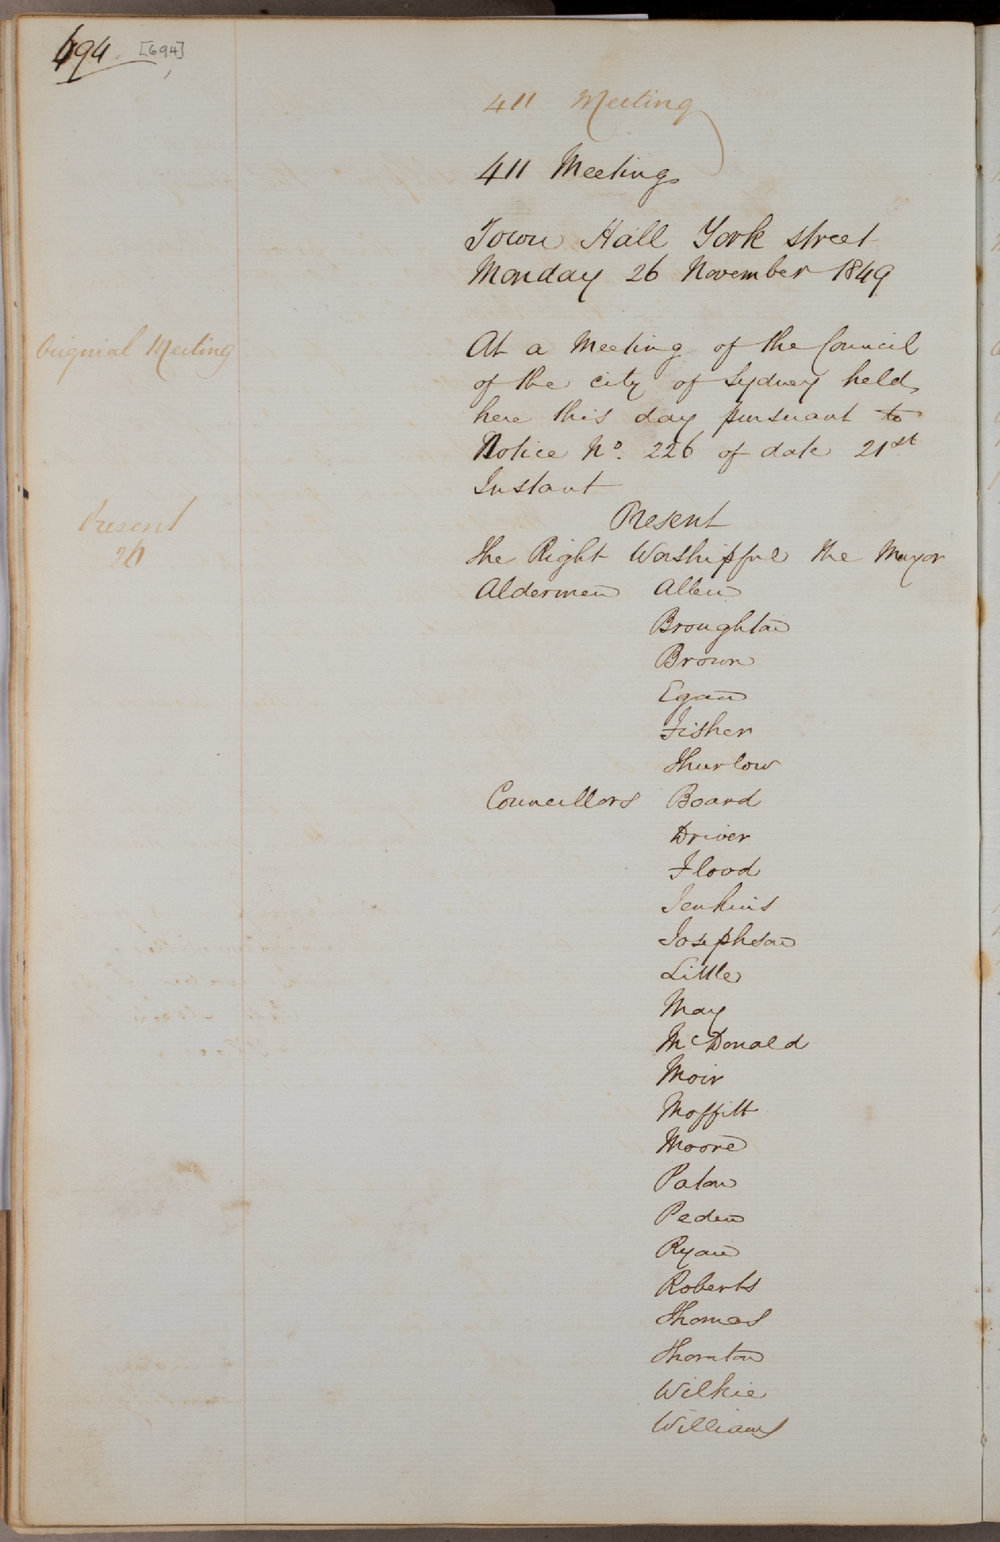 694. [694]
411 Meeting
411 Meeting
Town Hall York street
Monday 26 November 1849
Original Meeting
At a Meeting of the Council
of the city of Sydney held
here this day pursuant to
Notice No. 226 of date 21st
Instant
Present
26
Present
The Right Worshipful the Mayor
Aldermen Allen
Broughton
Brown
Egan
Fisher
Thurlow
Councillors Board
Driver
Flood
Jenkins
Josephson
Little
May
McDonald
Moir
Moffitt
Moore
Paton
Peden
Ryan
Roberts
Thomas
Thornton
Wilkie
Williams